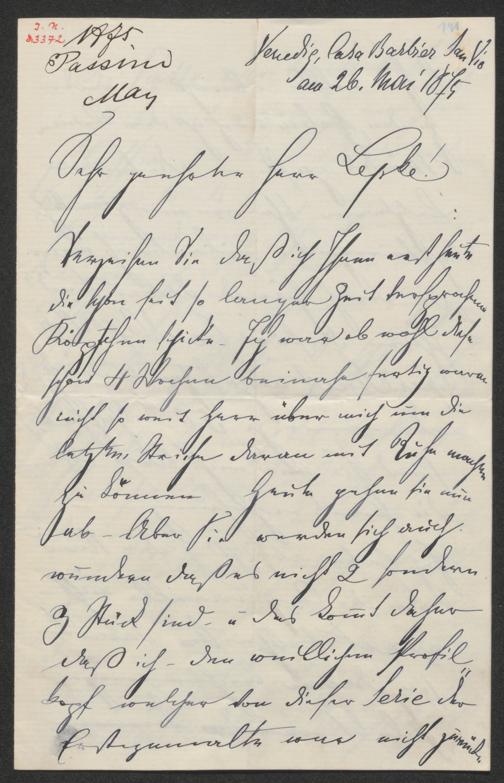 I. N.
83372
1875
Passini
May
181
Venedig, Casa Barbier San Vio
am 26. Mai 1875
Sehr geehrter Herr Lepke!
Verzeihen Sie daß ich Ihnen erst heute
die schon seit so langer Zeit versprochenen
Köpfchen schicke. Ich war ob wohl diese
schon 4 Wochen beinahe fertig waren
nicht so weit Herr über mich um die
letzten Striche daran mit Ruhe machen
zu können Heute gehen sie nun
ab - Aber Sie werden sich auch
wundern daß es nicht 2 sondern
3 Stück sind - u das kommt daher
daß ich - den weiblichen Profil
kopf welcher von dieser Serie der
Erstgemalte war nicht